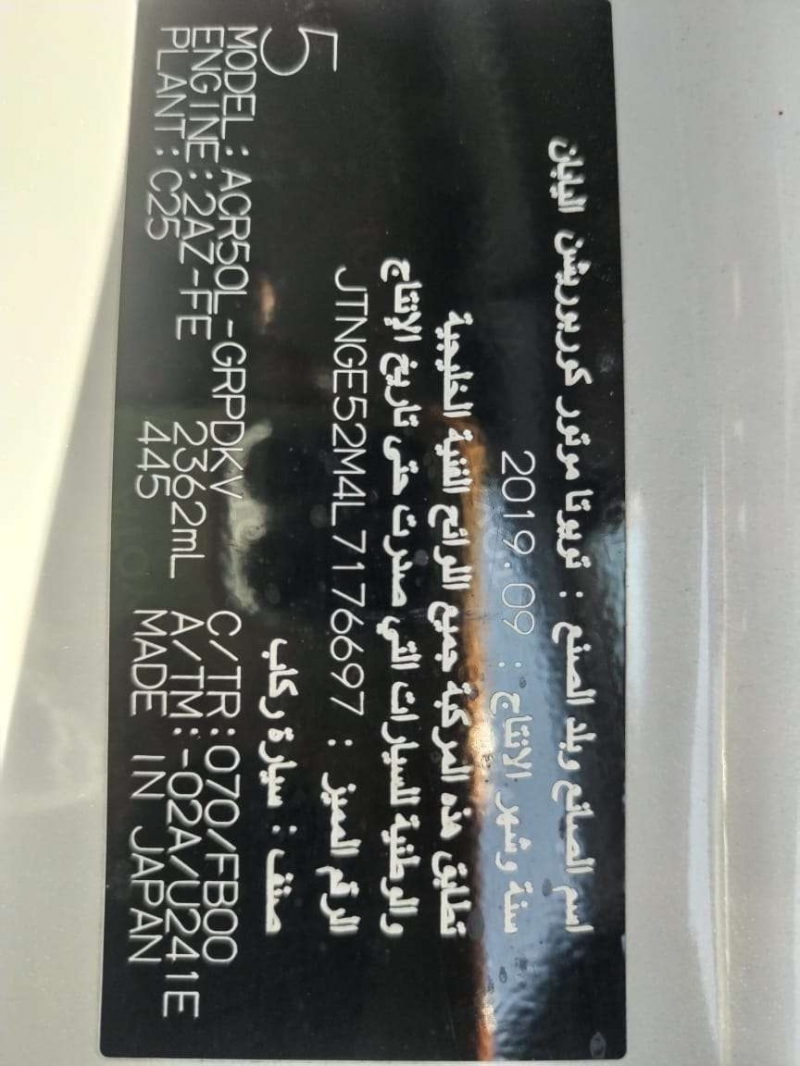 اسم الصانع وبلد الصنع : تويوتا موتور كوربوريشن اليابان
سنة وشهر الانتاج : 2019.09
تطابق هذه المركبة جميع اللوائح الفنية الخليجية
والوطنية للسيارات التي صدرت حتى تاريخ الإنتاج
الرقم المميز : JTNGE52M4L7176697
صنف : سيارة ركاب
5
MODEL: ACR50L-GRPDKV C/TR: 070/FB00
ENGINE: 2AZ-FE 2362mL A/TM: -02A/U241E
PLANT: C25 445 MADE IN JAPAN